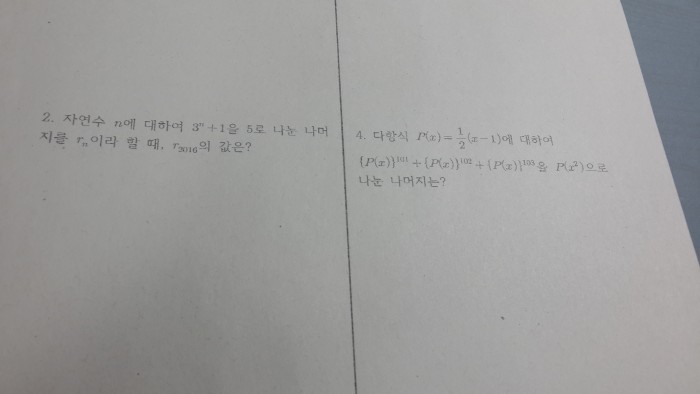 2. 자연수 n에 대하여 3ⁿ+1을 5로 나눈 나머
지를 rₙ이라 할 때, r₂₀₁₆의 값은?
4. 다항식 P(x)=½(x-1)에 대하여
{P(x)}¹⁰¹+{P(x)}¹⁰²+{P(x)}¹⁰³을 P(x²)으로
나눈 나머지는?